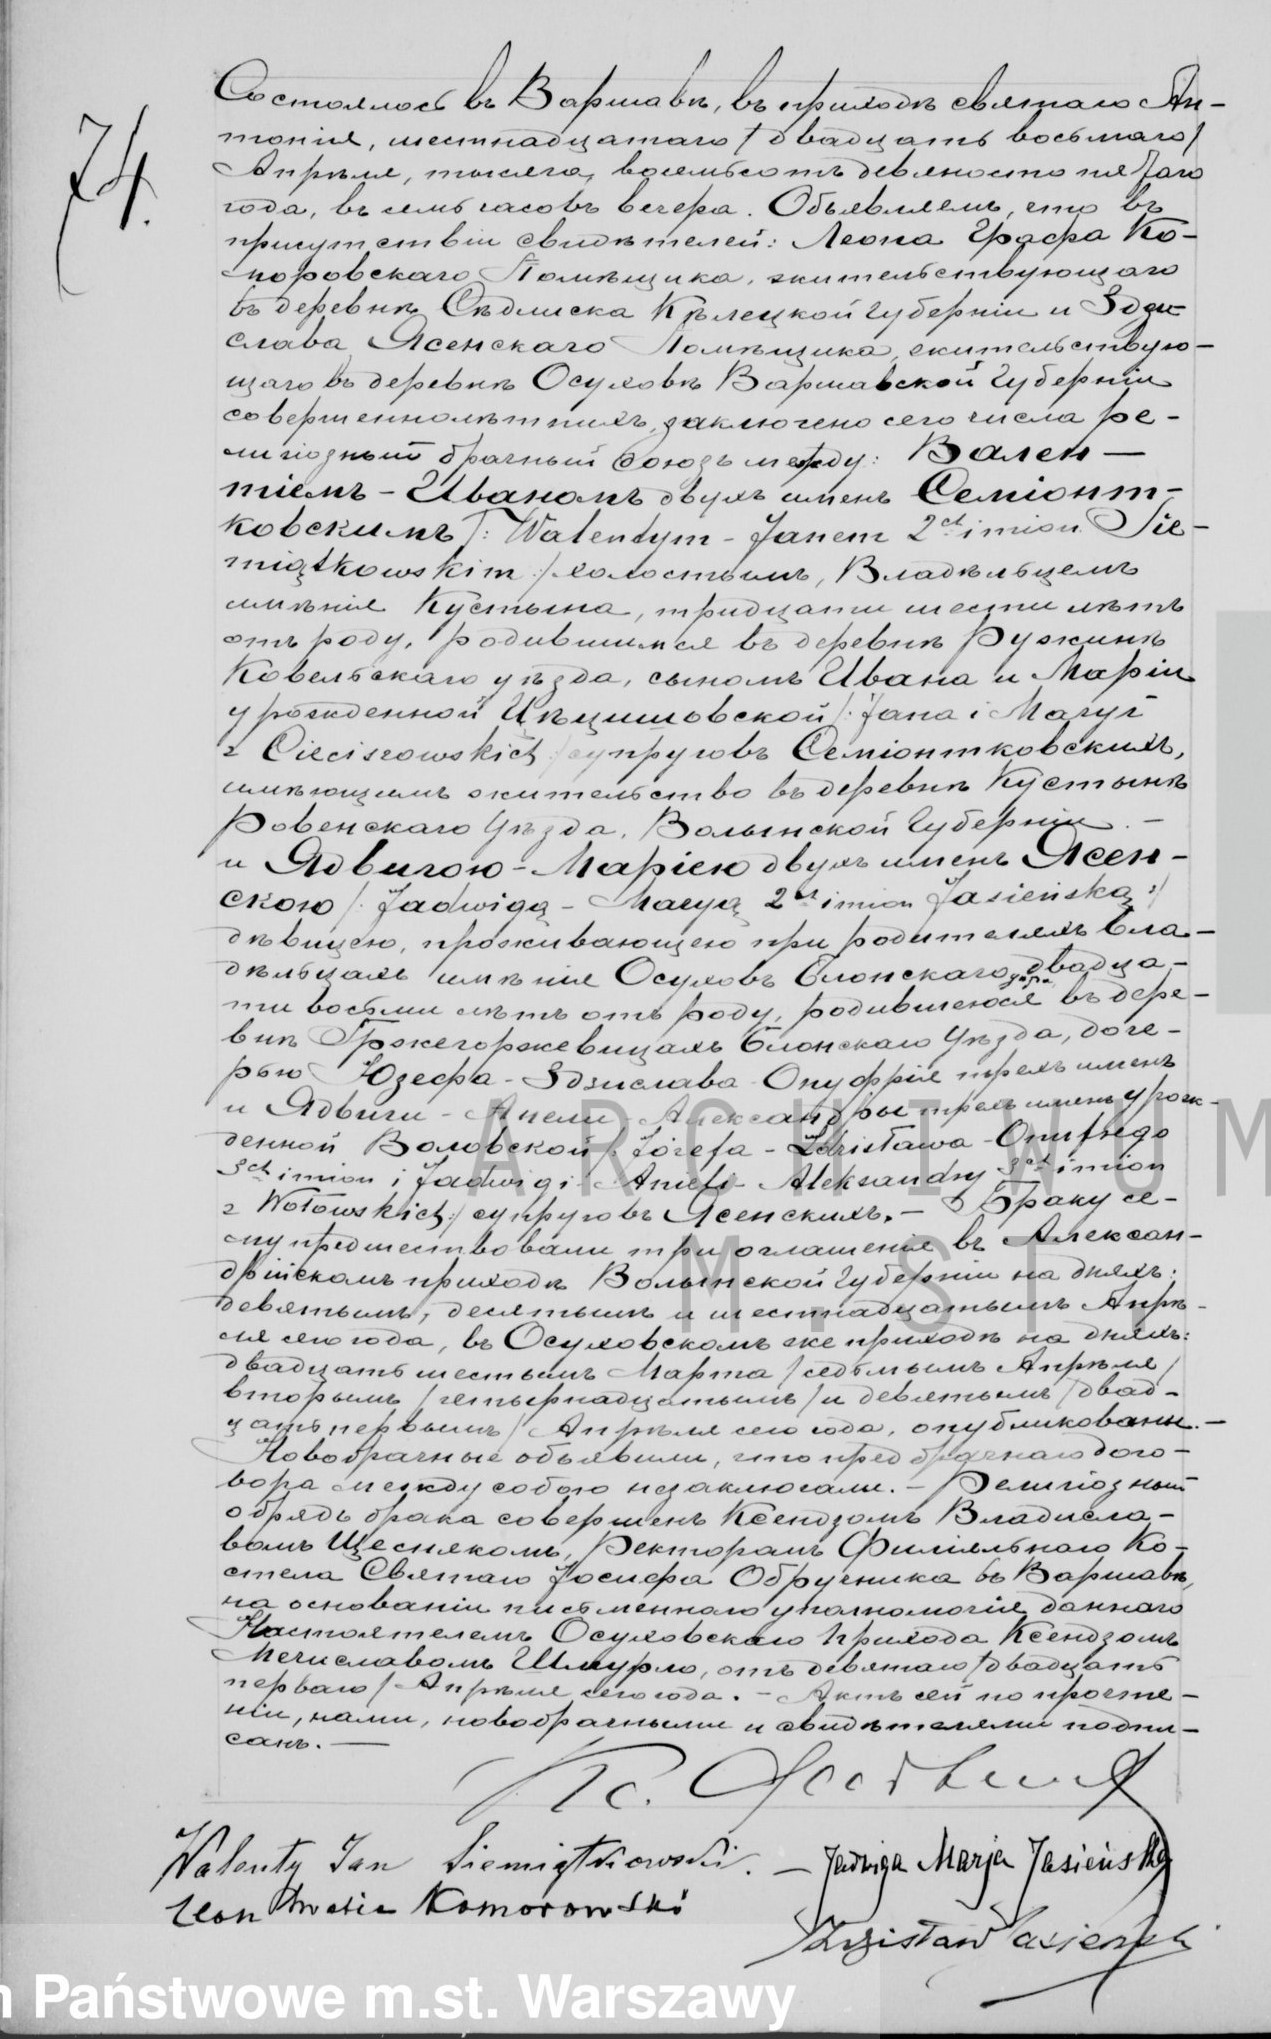 74.
Состоялось въ Варшавѣ, въ приходѣ святаго Ан-
тонія, шестнадцатаго / двадцать восьмаго /
Апрѣля, тысяча восемьсотъ девяносто пятаго
года, въ семь часовъ вечера. Объявляемъ, что въ
присутствіи свидѣтелей: Леона Графа Ко-
моровскаго Помѣщика, жительствующаго
въ деревнѣ Сѣдлиска Кѣлецкой Губерніи и Здзи
слава Ясенскаго Помѣщика, жительствую-
щаго въ деревнѣ Осуховѣ Варшавской Губерніи
совершеннолѣтнихъ, заключено сего числа ре-
лигіозный брачный союзъ между: Вален-
тіемъ-Иваномъ двухъ именъ Семіонт-
ковскимъ /: Walentym-Janem 2ch imion Sie-
miątkowskim :/ холостымъ, Владѣльцемъ
имѣнія Кустына, тридцати шести лѣтъ
отъ роду, родившимся въ деревнѣ Ружинѣ
Ковельскаго уѣзда, сыномъ Ивана и Маріи
урожденной Цѣцишовской /: Jana i Maryi
z Cieciszowskich :/ супруговъ Семіонтковскихъ,
имѣющимъ жительство въ деревнѣ Кустынѣ
Ровенскаго Уѣзда, Волынской Губерніи. -
и Ядвигою-Маріею двухъ именъ Ясен-
скою /: Jadwigą-Maryą 2ch imion Jasieńską :/
дѣвицею, проживающею при родителяхъ вла-
дѣльцахъ имѣнія Осуховъ Блонскаго уѣзда, двадца-
ти восьми лѣтъ отъ роду, родившеюся въ дере-
внѣ Гржегоржевицахъ Блонскаго Уѣзда, доче-
рью Юзефа-Здзислава-Онуфрія трехъ именъ
и Ядвиги-Анели, Александры трехъ именъ урож-
денной Воловской /: Józefa-Zdzisława-Onufrego
3ch imion i Jadwigi-Anieli-Aleksandry 3ch imion
z Wołowskich :/ супруговъ Ясенскихъ. - Браку се-
му предшествовали три оглашенія въ Алексан-
дрійскомъ приходѣ Волынской Губерніи на дняхъ:
девятымъ, десятымъ и шестнадцатымъ Апрѣ-
ля сего года, въ Осуховскомъ же приходѣ на дняхъ:
двадцать шестымъ Марта / седьмымъ Апрѣля /
вторымъ / четырнадцатымъ / и девятымъ / двад-
цать первымъ / Апрѣля сего года, опубликованы. -
Новобрачные объявили, что предбрачнаго дого-
вора между собою незаключали. - Религіозный
обрядъ брака совершенъ Ксендзомъ Владисла-
вомъ Щеснякомъ, Ректоромъ Филіяльнаго Ко-
стела Святаго Іосифа Обручника въ Варшавѣ,
на основаніи письменнаго уполномочія даннаго
Настоятелемъ Осуховскаго прихода Ксендзомъ
Мечиславомъ Шмурло, отъ девятаго / двадцать
перваго / Апрѣля сего года. - Актъ сей по прочте-
ніи, нами, новобрачными и свидѣтелями подпи-
санъ. -
Walenty Jan Siemiątkowski. - Jadwiga Marja Jasieńska
Leon Komorowski
Zdzisław Jasieński
ARCHIWUM
M. ST.
Państwowe m.st. Warszawy